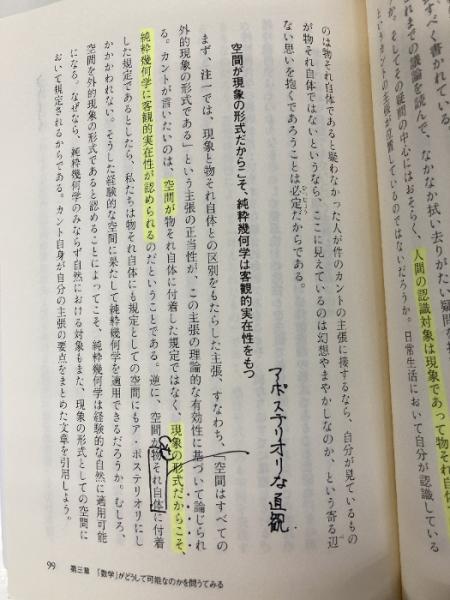 すべく書かれている。
れまでの議論を読んで、なかなか拭い去りがたい疑問を
か。そしてその疑問の中心にはおそらく、人間の認識対象は現象であって物それ自体
というカントの主張が位置しているのではないだろうか。日常生活において自分が認識している
のは物それ自体であると疑わなかった人が件のカントの主張に接するなら、自分が見ているもの
が物それ自体ではないというなら、ここに見えているのは幻想やまやかしなのか、という寄る辺
ない思いを抱くであろうことは必定だからである。
空間が現象の形式だからこそ、純粋幾何学は客観的実在性をもつ
まず、注一では、現象と物それ自体との区別をもたらした主張、すなわち、「空間はすべての
外的現象の形式である」という主張の正当性が、この主張の理論的な有効性に基づいて論じられ
る。カントが言いたいのは、空間が物それ自体に付着した規定ではなく、現象の形式だからこそ、
純粋幾何学に客観的実在性が認められるのだということである。逆に、空間が物それ自体に付着
した規定であるとしたら、私たちは物それ自体にも規定としての空間にもア・ポステリオリにし
かかかわれない。そうした経験的な空間に果たして純粋幾何学を適用できるだろうか。むしろ、
空間を外的現象の形式であると認めることによってこそ、純粋幾何学は経験的な自然に適用可能
になる。なぜなら、純粋幾何学のみならず自然における対象もまた、現象の形式としての空間に
おいて規定されるからである。カント自身が自分の主張の要点をまとめた文章を引用しよう。
アポステリオリな直観
99 第三章 「数学」がどうして可能なのかを問うてみる